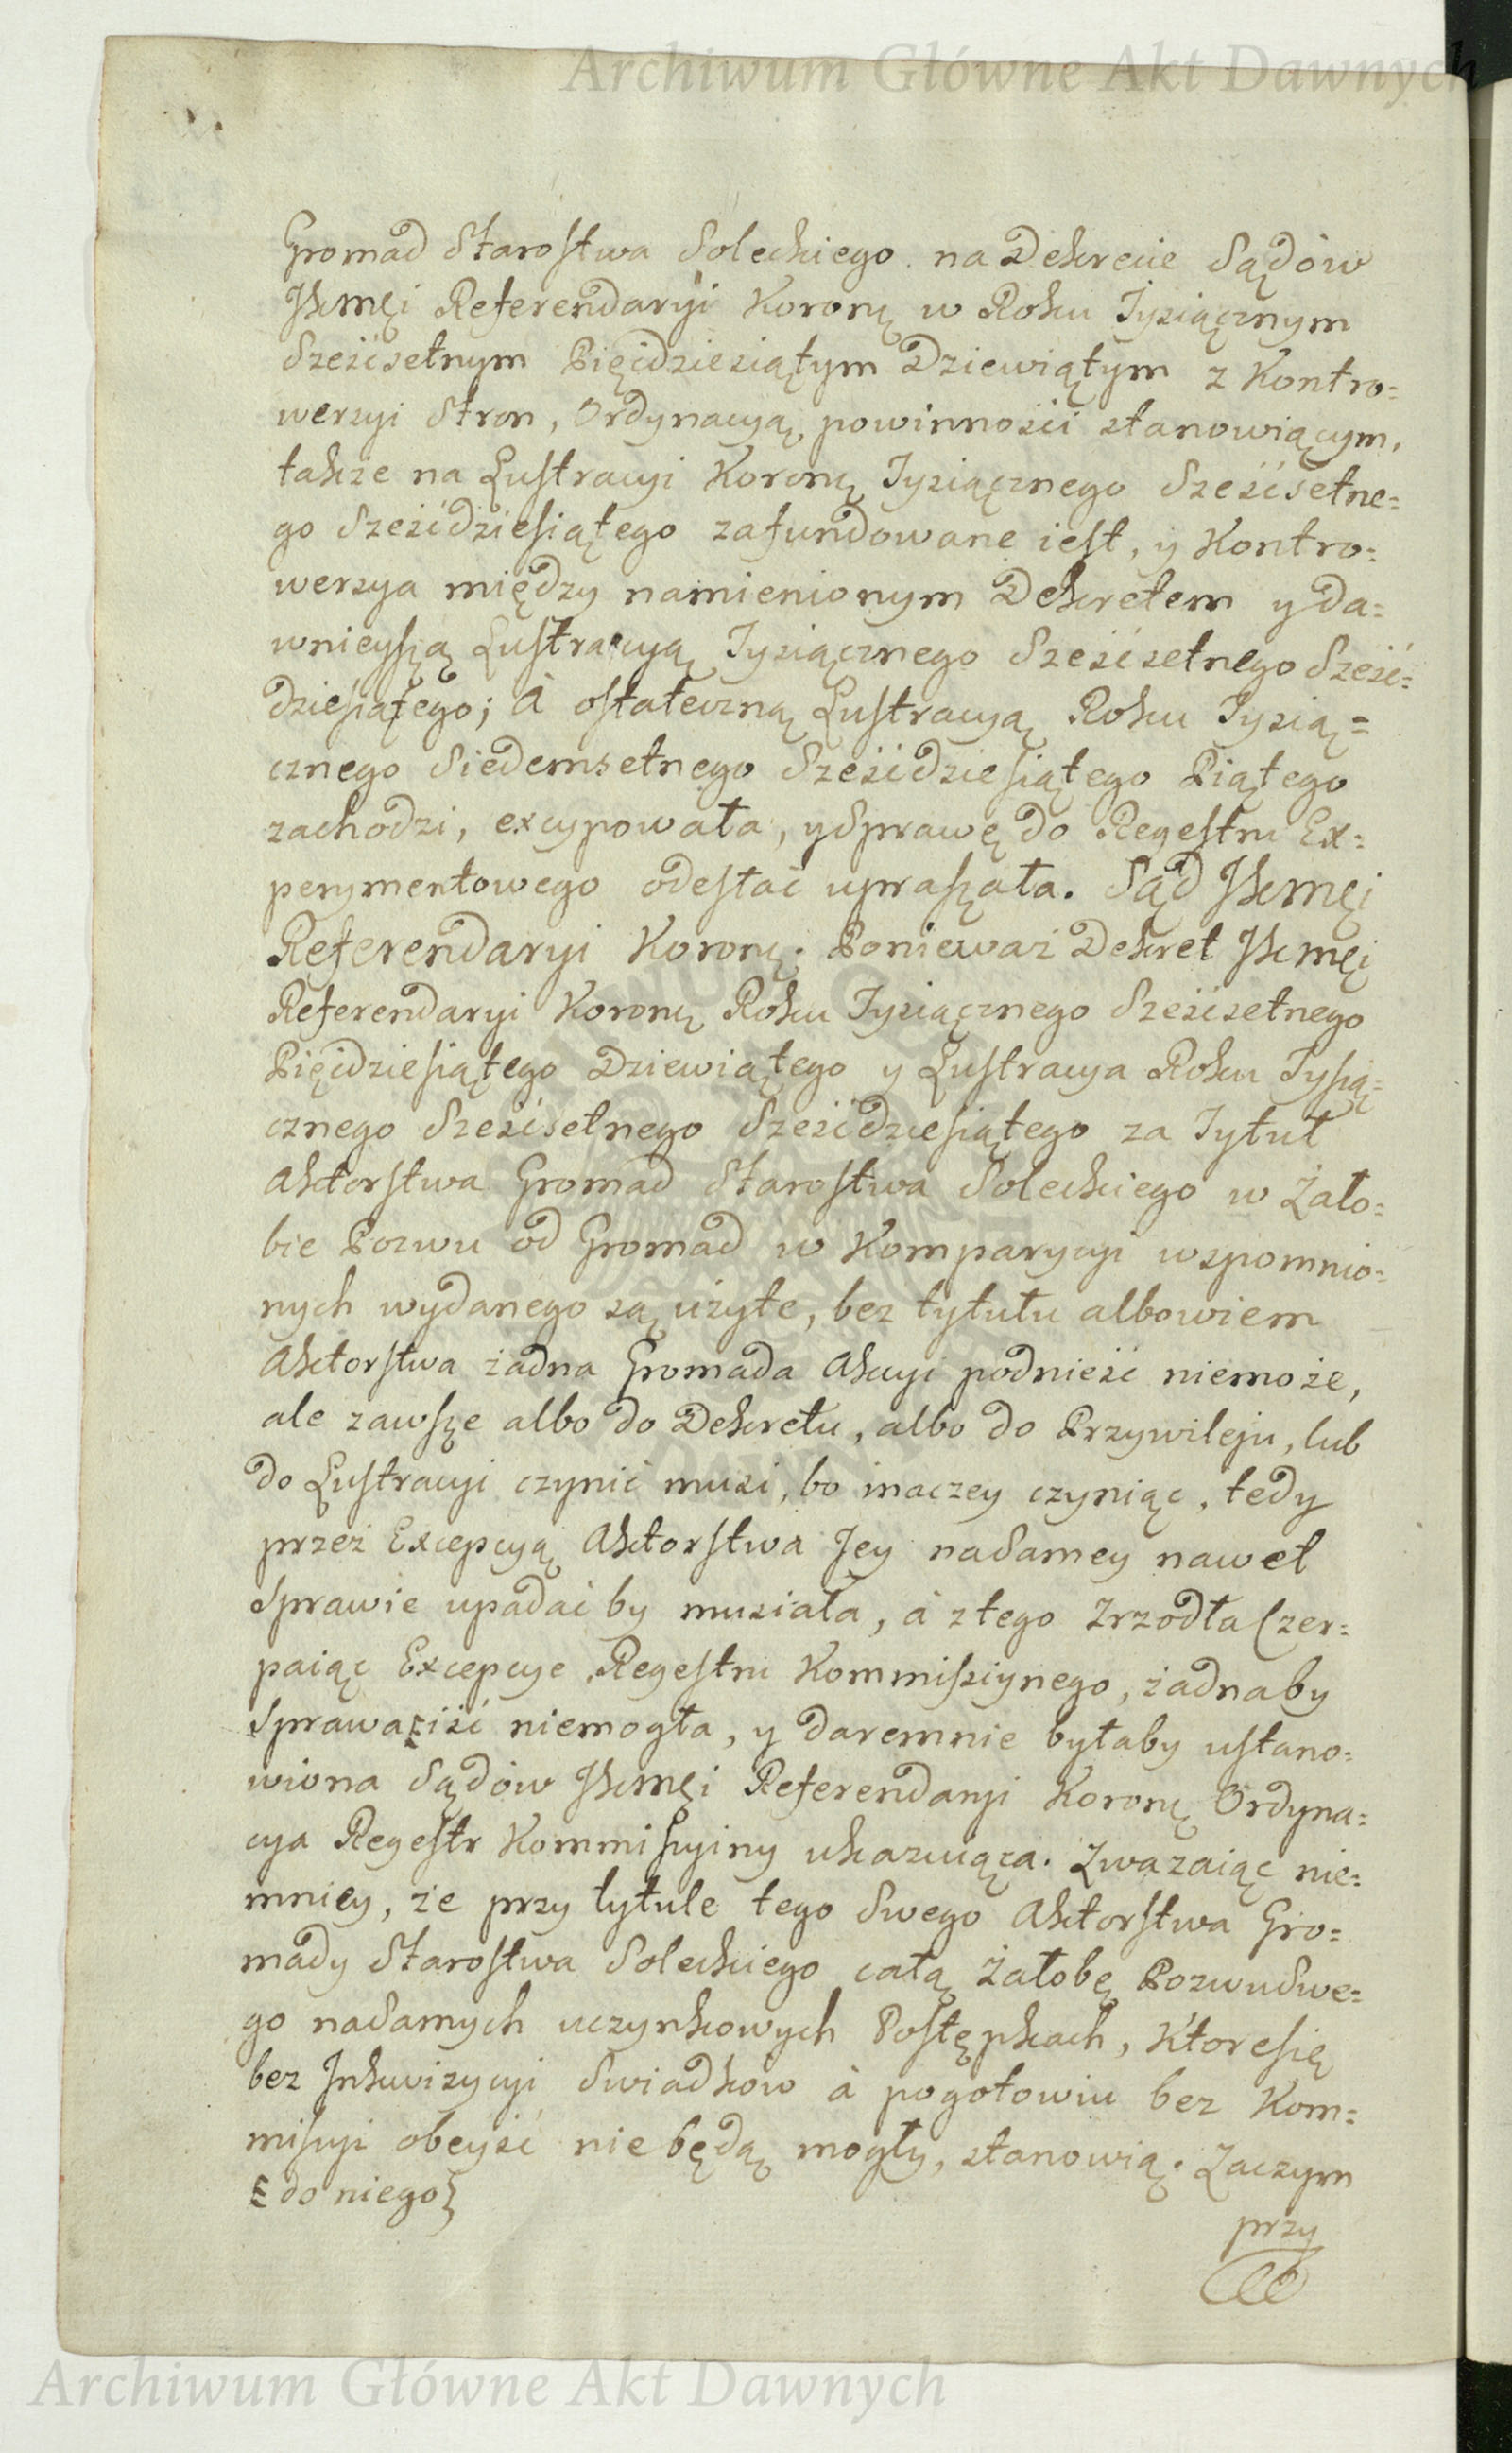 Archiwum Główne Akt Dawnych
Gromad Starostwa Soleckiego na Dekrecie Sądów
JKmci Referendaryi Koronney w Roku Tysiącznym
Sześćsetnym Pięćdziesiątym Dziewiątym z Kontro=
wersyi Stron, Ordynacyą powinności stanowiącym,
także na Lustracyi Koronney Tysiącznego Sześćsetne=
go Sześćdziesiątego zafundowane iest, y Kontro=
wersya między namienionym Dekretem y da=
wnieyszą Lustracyą Tysiącznego Sześćsetnego Sześć=
dziesiątego; à ostateczną Lustracyą Roku Tysią=
cznego Siedemsetnego Sześćdziesiątego Piątego
zachodzi, excypowała, y Sprawę do Regestru Ex=
perymentowego odesłać upraszała. Sąd JKmci
Referendaryi Koronney. Ponieważ Dekret JKmci
Referendaryi Koronney Roku Tysiącznego Sześćsetnego
Pięćdziesiątego Dziewiątego y Lustracya Roku Tysią=
cznego Sześćsetnego Sześćdziesiątego za Tytuł
Aktorstwa Gromad Starostwa Soleckiego w Żało=
bie Pozwu od Gromad w Komparycyi wspomnio=
nych wydanego są użyte, bez tytułu albowiem
Aktorstwa żadna Gromada Akcyi podnieść niemoże,
ale zawsze albo do Dekretu, albo do Przywileju, lub
do Lustracyi czynić musi, bo inaczey czyniąc, tedy
przez Excepcyą Aktorstwa Jey na Samey nawet
Sprawie upadać by musiała, à z tego Zrzodła Czer=
paiąc Excepcye Regestru Kommissiynego, żadnaby
Sprawa iść niemogła, y daremnie byłaby ustano=
wiona Sądów JKmci Referendaryi Koronney Ordyna=
cya Regestr Kommissyiny ukazuiąca. Zważaiąc nie=
mniey, że przy tytule tego Swego Aktorstwa Gro=
mady Starostwa Soleckiego całą Żałobę Pozwu Swe=
go na Samych uczynkowych Postępkach, Które się
bez Inkwizycyi Swiadków à pogotowiu bez Kom=
missyi obeyść nie będą mogły, stanowią. Zaczym
do niego
przy
Archiwum Główne Akt Dawnych